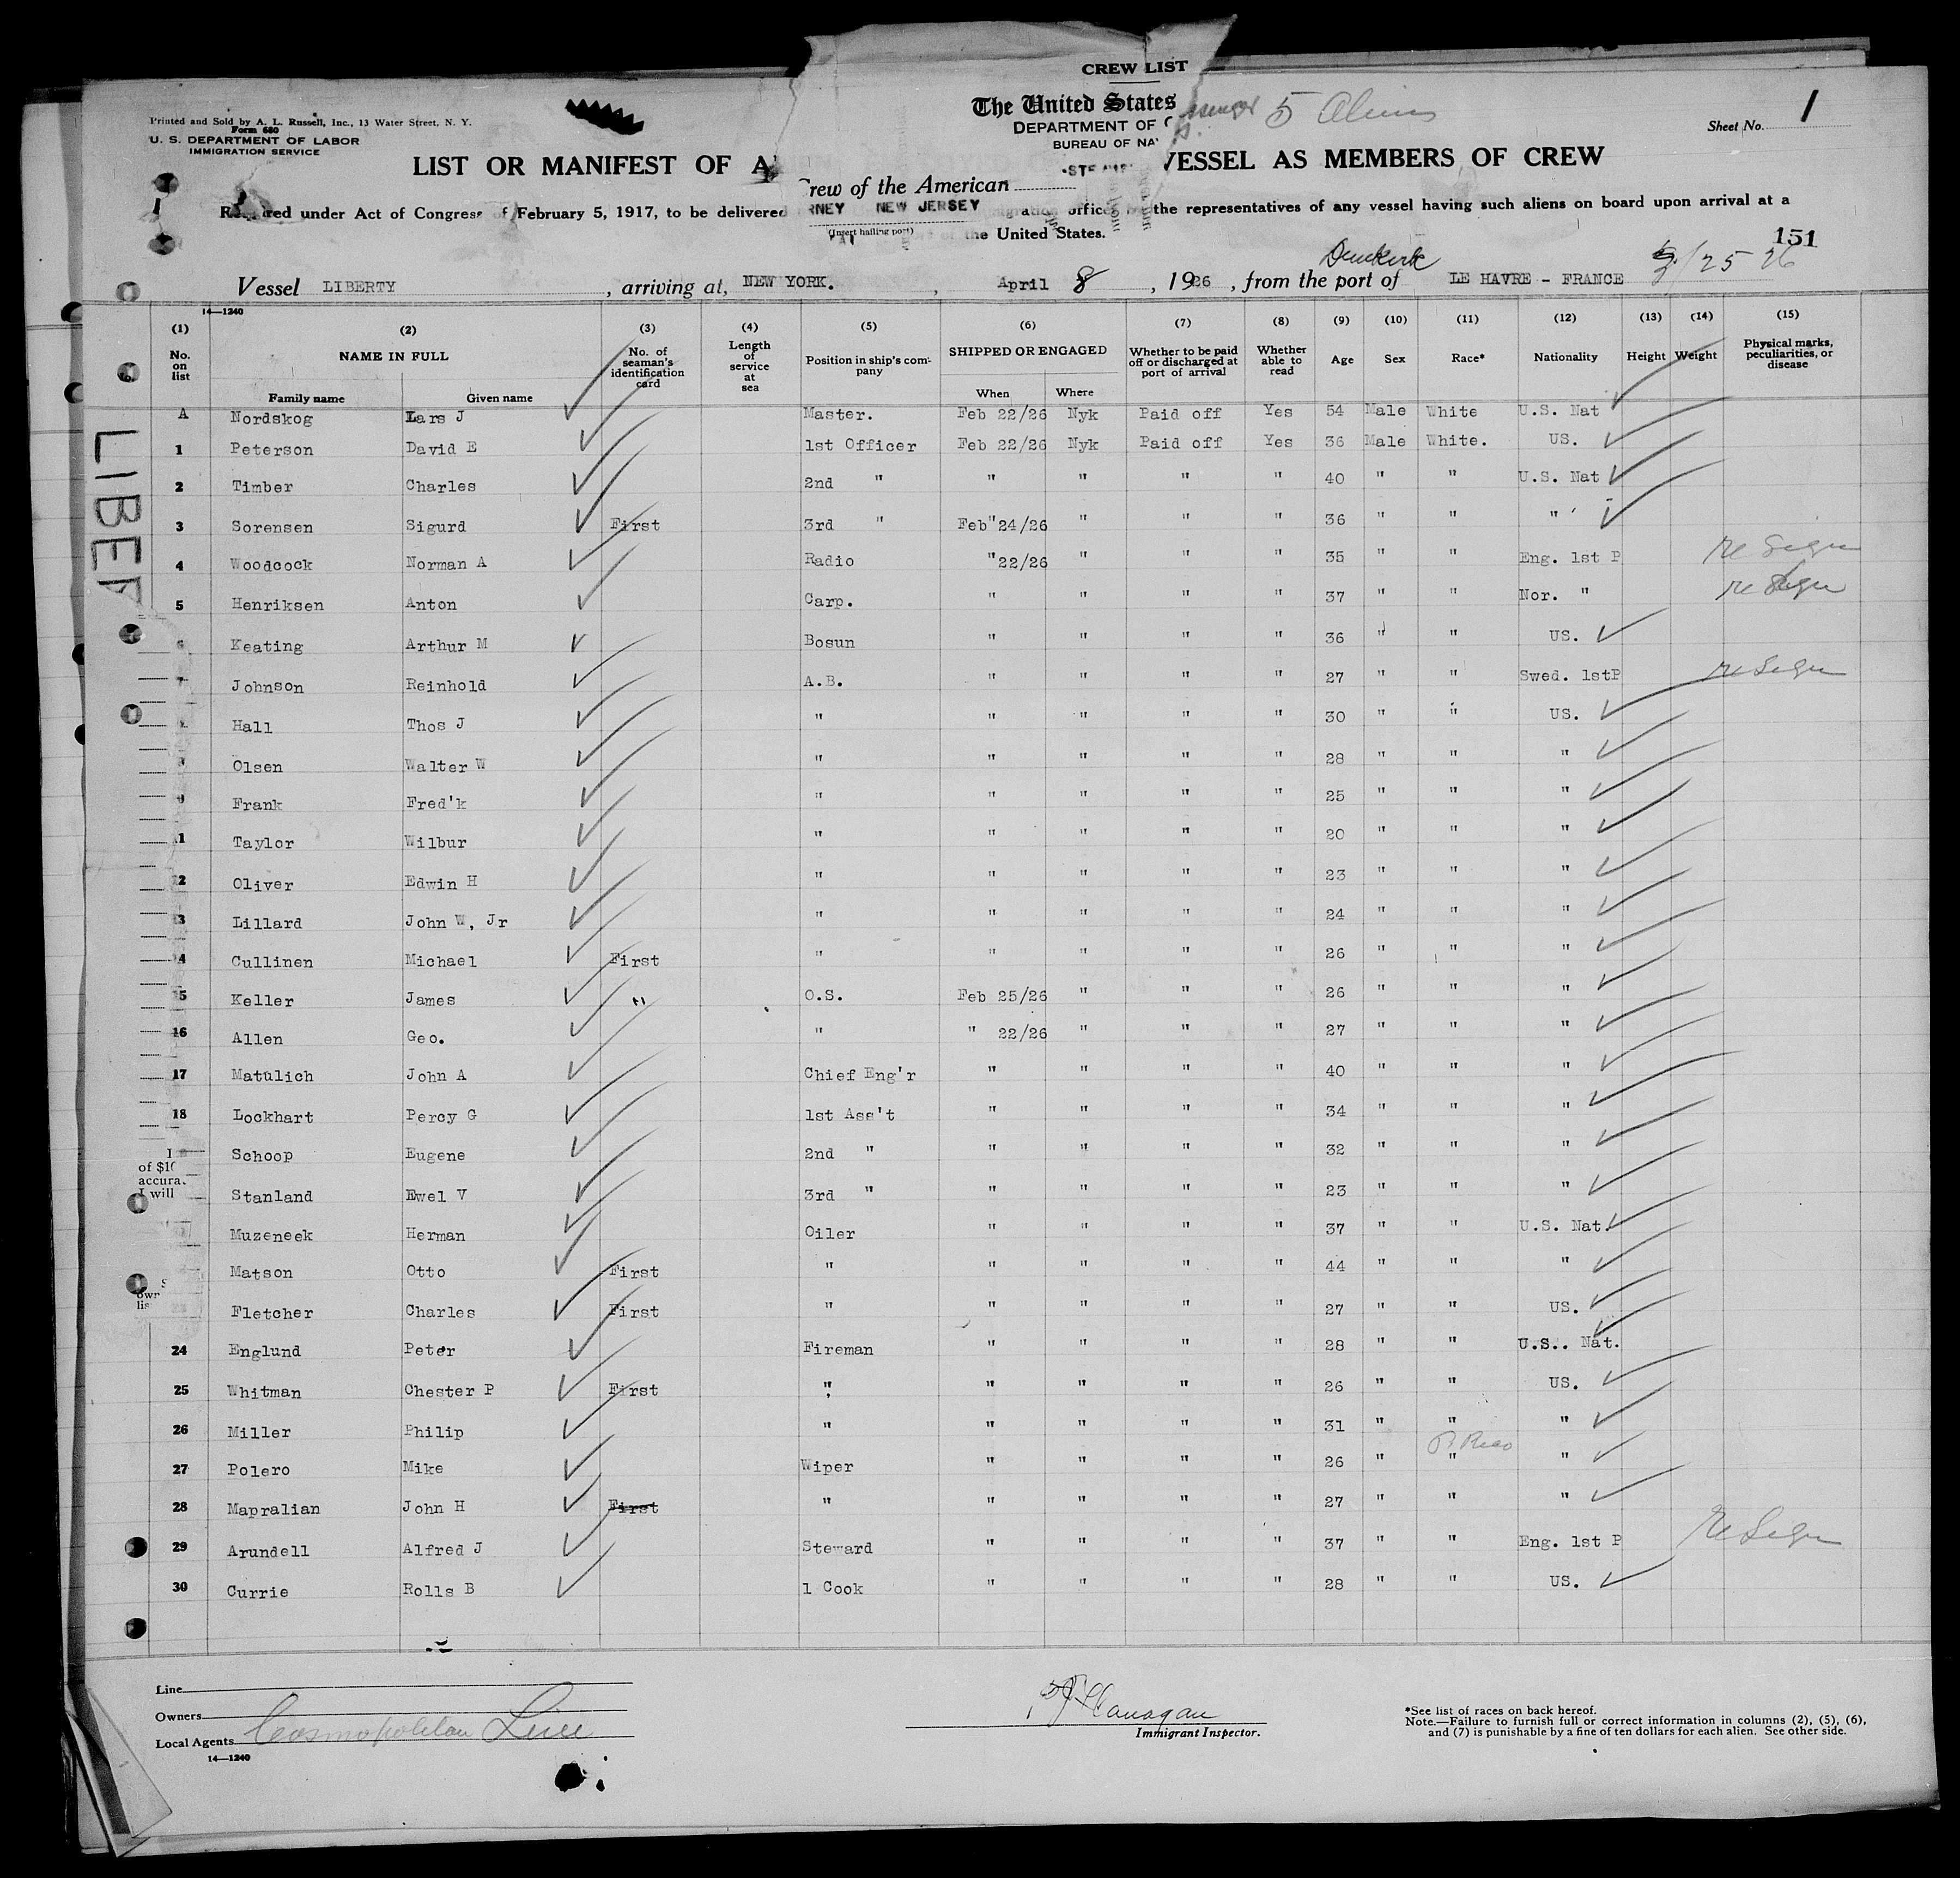 CREW LIST
The United States
DEPARTMENT OF
BUREAU OF
5 Aliens
Sheet No. 1
Printed and Sold by A. L. Russell, Inc., 13 Water Street, N. Y.
Form 680
U. S. DEPARTMENT OF LABOR
IMMIGRATION SERVICE
LIST OR MANIFEST OF VESSEL AS MEMBERS OF CREW
Crew of the American
Required under Act of Congress of February 5, 1917, to be delivered the representatives of any vessel having such aliens on board upon arrival at a
NEW JERSEY
(Insert hailing port)
the United States.
151
Dunkirk
Vessel LIBERTY, arriving at, NEW YORK., April 8, 1926, from the port of LE HAVRE - FRANCE 25 26
14—1240
(1) (2) (3) (4) (5) (6) (7) (8) (9) (10) (11) (12) (13) (14) (15)
No. on list NAME IN FULL No. of seaman's identification card Length of service at sea Position in ship's company SHIPPED OR ENGAGED Whether to be paid off or discharged at port of arrival Whether able to read Age Sex Race* Nationality Height Weight Physical marks, peculiarities, or disease
Family name Given name When Where
A Nordskog Lars J Master. Feb 22/26 Nyk Paid off Yes 54 Male White U.S. Nat
1 Peterson David E 1st Officer Feb 22/26 Nyk Paid off Yes 36 Male White. US.
2 Timber Charles 2nd " " " " " 40 " " U.S. Nat
3 Sorensen Sigurd First 3rd " Feb"24/26 " " " 36 " " "
4 Woodcock Norman A Radio "22/26 " " " 35 " " Eng. 1st P re Sign
5 Henriksen Anton Carp. " " " " 37 " " Nor. " re Sign
Keating Arthur M Bosun " " " " 36 " " US.
Johnson Reinhold A.B. " " " " 27 " " Swed. 1stP re Sign
Hall Thos J " " " " " 30 " " US.
Olsen Walter W " " " " " 28 " " "
Frank Fred'k " " " " " 25 " " "
11 Taylor Wilbur " " " " " 20 " " "
12 Oliver Edwin H " " " " " 23 " " "
13 Lillard John W, Jr " " " " " 24 " " "
14 Cullinen Michael First " " " " " 26 " " "
15 Keller James " O.S. Feb 25/26 " " " 26 " " "
16 Allen Geo. " " 22/26 " " " 27 " " "
17 Matulich John A Chief Eng'r " " " " 40 " " "
18 Lockhart Percy G 1st Ass't " " " " 34 " " "
Schoop Eugene 2nd " " " " " 32 " " "
Stanland Ewel V 3rd " " " " " 23 " " "
Muzeneek Herman Oiler " " " " 37 " " U.S. Nat.
Matson Otto First " " " " " 44 " " "
Fletcher Charles First " " " " " 27 " " US.
24 Englund Peter Fireman " " " " 28 " " U.S.. Nat.
25 Whitman Chester P First " " " " " 26 " " US.
26 Miller Philip " " " " " 31 " " "
P. Rico
27 Polero Mike Wiper " " " " 26 " " "
28 Mapralian John H First " " " " " 27 " " "
29 Arundell Alfred J Steward " " " " 37 " " Eng. 1st P re Sign
30 Currie Rolls B 1 Cook " " " " 28 " " US.
LIBER
of $10
accura
I will
own
Line
Owners
Local Agents Cosmopolitan Line
14—1240
Flanagan
Immigrant Inspector.
*See list of races on back hereof.
Note.—Failure to furnish full or correct information in columns (2), (5), (6),
and (7) is punishable by a fine of ten dollars for each alien. See other side.